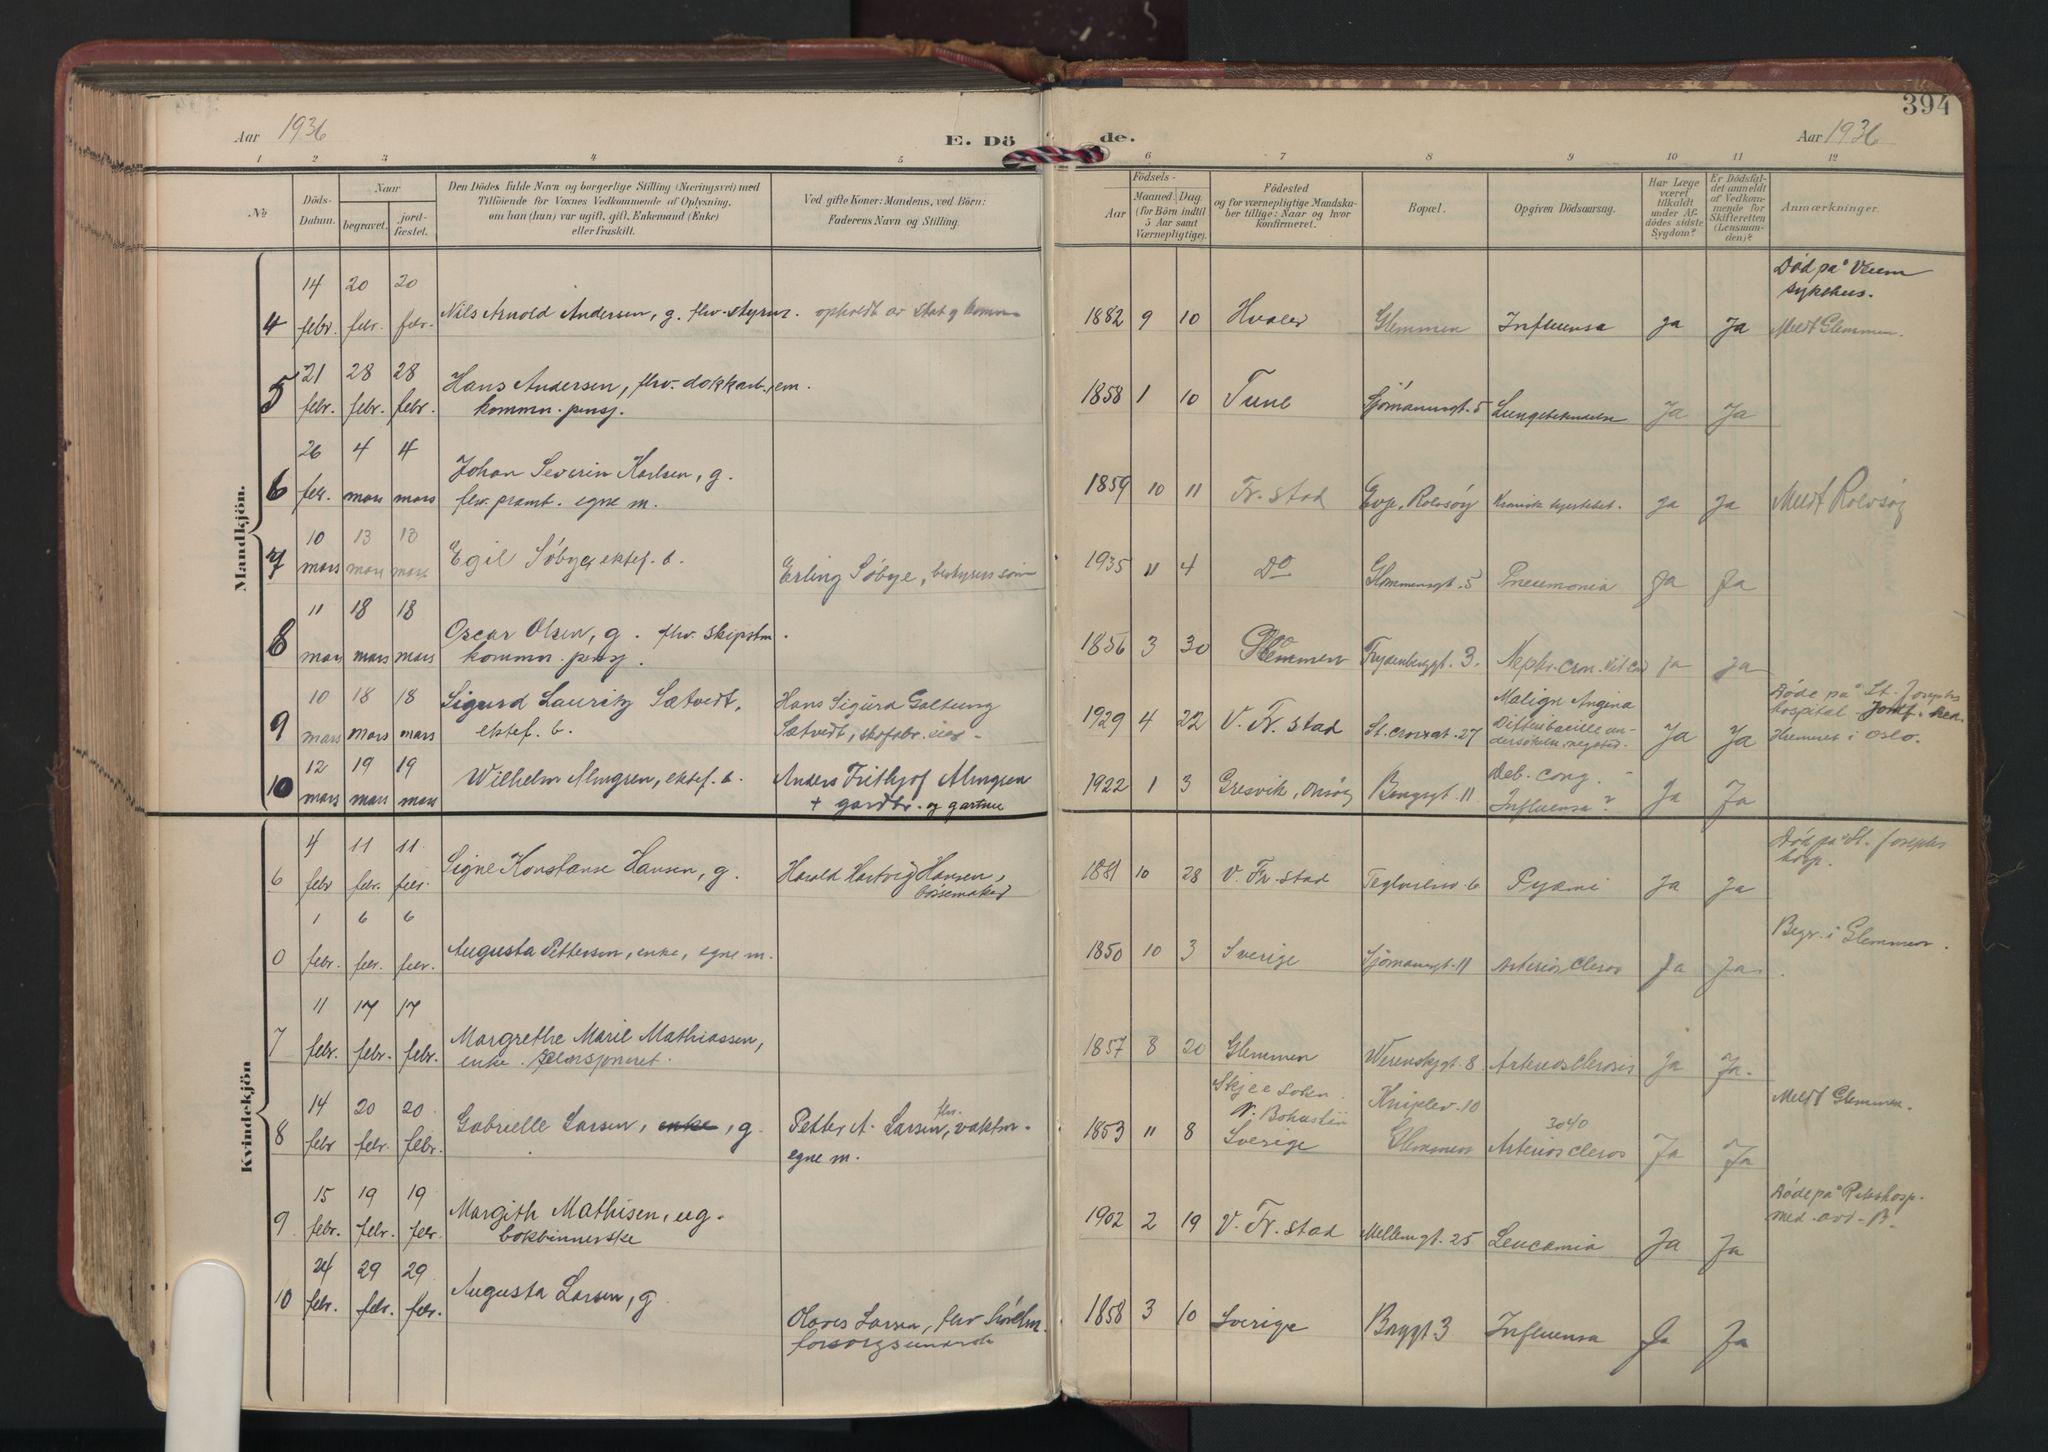 394
Aar 1936
E. Dö de.
Aar 1936
1 2 3 4 5 6 7 8 9 10 11 12
No
Döds-Datum.
Naar
begravet.
jord-fæstet.
Den Dödes fulde Navn og borgerlige Stilling (Næringsvei) med
Tilföiende for Voxnes Vedkommende af Oplysning,
om han (hun) var ugift, gift, Enkemand (Enke)
eller fraskilt.
Ved gifte Koner: Mandens, ved Börn:
Faderens Navn og Stilling.
Födsels-
Aar
Maaned. Dag.
(for Börn indtil
5 Aar samt
Værnepligtige).
Födested
og for værnepligtige Mandska-
ber tillige: Naar og hvor
konfirmeret.
Bopæl.
Opgiven Dödsaarsag.
Har Læge
været
tilkaldt
under Af-
dödes sidste
Sygdom?
Er Dödsfal-
det anmeldt
af Vedkom-
mende for
Skifteretten
(Lensman-
den)?
Anmærkninger.
Mandkjön.
4 14 febr. 20 febr. 20 febr. Nils Arnold Andersen, g. fhv. styrm. opholdt av Stat og komm. 1882 9 10 Hvaler Glemmen Influensa ja Ja Död på Veum
sykehus.
Meldt Glemmen.
5 21 febr. 28 febr. 28 febr. Hans Andersen, fhv. dokkarb., em.
kommn. pensj. 1858 1 10 Tune Sjömannsgt. 5 Lungebetendelse Ja Ja
6 26 febr. 4 mars 4 mars Johan Severin Karlsen, g.
fhv. pramt. egne m. 1859 10 11 Fr.stad Evje, Rolvsöy Kronisk hjertebet. ja Ja Meldt Rolvsöy
7 10 mars 13 mars 13 mars Egil Söbye, ektef. b. Erling Söbye, 1935 11 4 Do Glemmensgt. 5 Pneumonia Ja Ja
8 11 mars 18 mars 18 mars Oscar Olsen, g. fhv. skipstm.
kommn. pensj. 1856 3 30 Glemmen Frydenberggt. 3. Nephr. cron. ja Ja
9 10 mars 18 mars 18 mars Sigurd Lauritz Sætvedt,
ektef. b. Hans Sigurd Galtung
Sætvedt, skofabr. eier 1929 4 22 V. Fr.stad St. Croixgt. 27 Malign Angina
Ja Ja Döde på St. Josephs
hospital
hjemmet i Oslo.
10 12 mars 19 mars 19 mars Wilhelm Almgren, ektef. b. Anders Frithjof Almgren
+ gårdbr. og gartner 1922 1 3 Gresvik, Onsöy Bergsgt. 11 Deb. cong. -
Influensa? Ja Ja
Kvindekjön
6 4 febr 11 febr. 11 febr. Signe Konstanse Hansen, g. Harald Hartvig Hansen,
börsemaker 1881 10 28 V. Fr.stad 6 Pyæmi Ja Ja Död på St. Josephs
hosp.
0 1 febr. 6 febr. 6 febr. Augusta Pettersen, enke, egne m. 1850 10 3 Sverige Sjömannsgt. 11 Arterioscleros Ja Ja. Begr. i Glemmen.
7 11 febr. 17 febr. 17 febr. Margrethe Marie Mathiassen,
enke. pensjoneret. 1857 8 20 Glemmen Werenskjgt. 8 Arteriosclerosis Ja Ja.
8 14 febr 20 febr. 20 febr. Gabrielle Larsen, enke, g. Petter A. Larsen, fhv. vaktm.
egne m. 1853 11 8 Skjee Soken
N. Bohuslän
Sverige Kniplev. 10
Glemmen 3040
Arterioscleros Ja Ja Meldt Glemmen.
9 15 febr. 19 febr. 19 febr. Margith Mathisen, ug.
bokbinnerske 1902 2 19 V. Fr.stad Mellemgt. 25 Leucamia Ja Ja Döde på Rikshosp.
med. avd. B.
10 24 febr. 29 febr. 29 febr. Augusta Larsen, g. Olaves Larsen, fhv
forsorgsunderst. 1858 3 10 Sverige Bryggt 3 Influensa Ja Ja